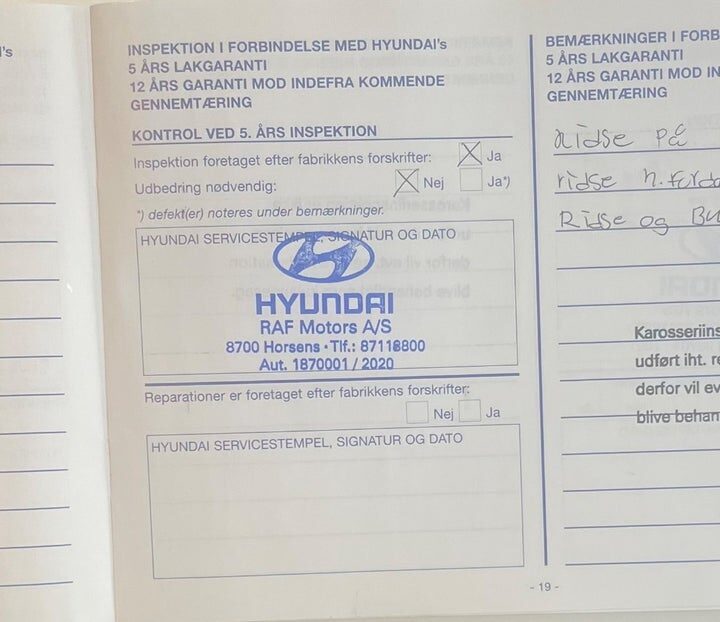 's
INSPEKTION I FORBINDELSE MED HYUNDAI's
5 ÅRS LAKGARANTI
12 ÅRS GARANTI MOD INDEFRA KOMMENDE
GENNEMTÆRING
KONTROL VED 5. ÅRS INSPEKTION
Inspektion foretaget efter fabrikkens forskrifter: Ja
Udbedring nødvendig: Nej Ja*)
*) defekt(er) noteres under bemærkninger.
HYUNDAI SERVICESTEMPEL, SIGNATUR OG DATO
HYUNDAI
RAF Motors A/S
8700 Horsens · Tlf.: 87118800
Aut. 1870001 / 2020
Reparationer er foretaget efter fabrikkens forskrifter:
Nej Ja
HYUNDAI SERVICESTEMPEL, SIGNATUR OG DATO
- 19 -
BEMÆRKNINGER I FORB
5 ÅRS LAKGARANTI
12 ÅRS GARANTI MOD IN
GENNEMTÆRING
Ridse På
ridse h. 
Ridse og Bu
Karosseriins
udført iht. re
derfor vil ev
blive behan